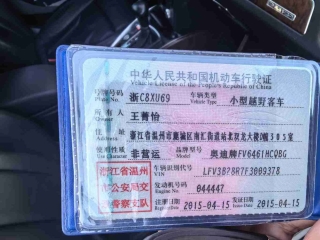 中华人民共和国机动车行驶证
Vehicle License of the People's Republic of China
号牌号码 浙C8XU69 车辆类型 小型越野客车
Plate No. Vehicle Type
所有人 王菁怡
住址 浙江省温州市鹿城区南汇街道站北双龙大楼D幢505室
使用性质 非营运 品牌型号 奥迪牌FV6461HCQBG
浙江省温州 车辆识别代号 LFV3B78R7F3009378
市公安局交 发动机号码 044447
通警察支队 注册日期 2015-04-15 发证日期 2015-04-15